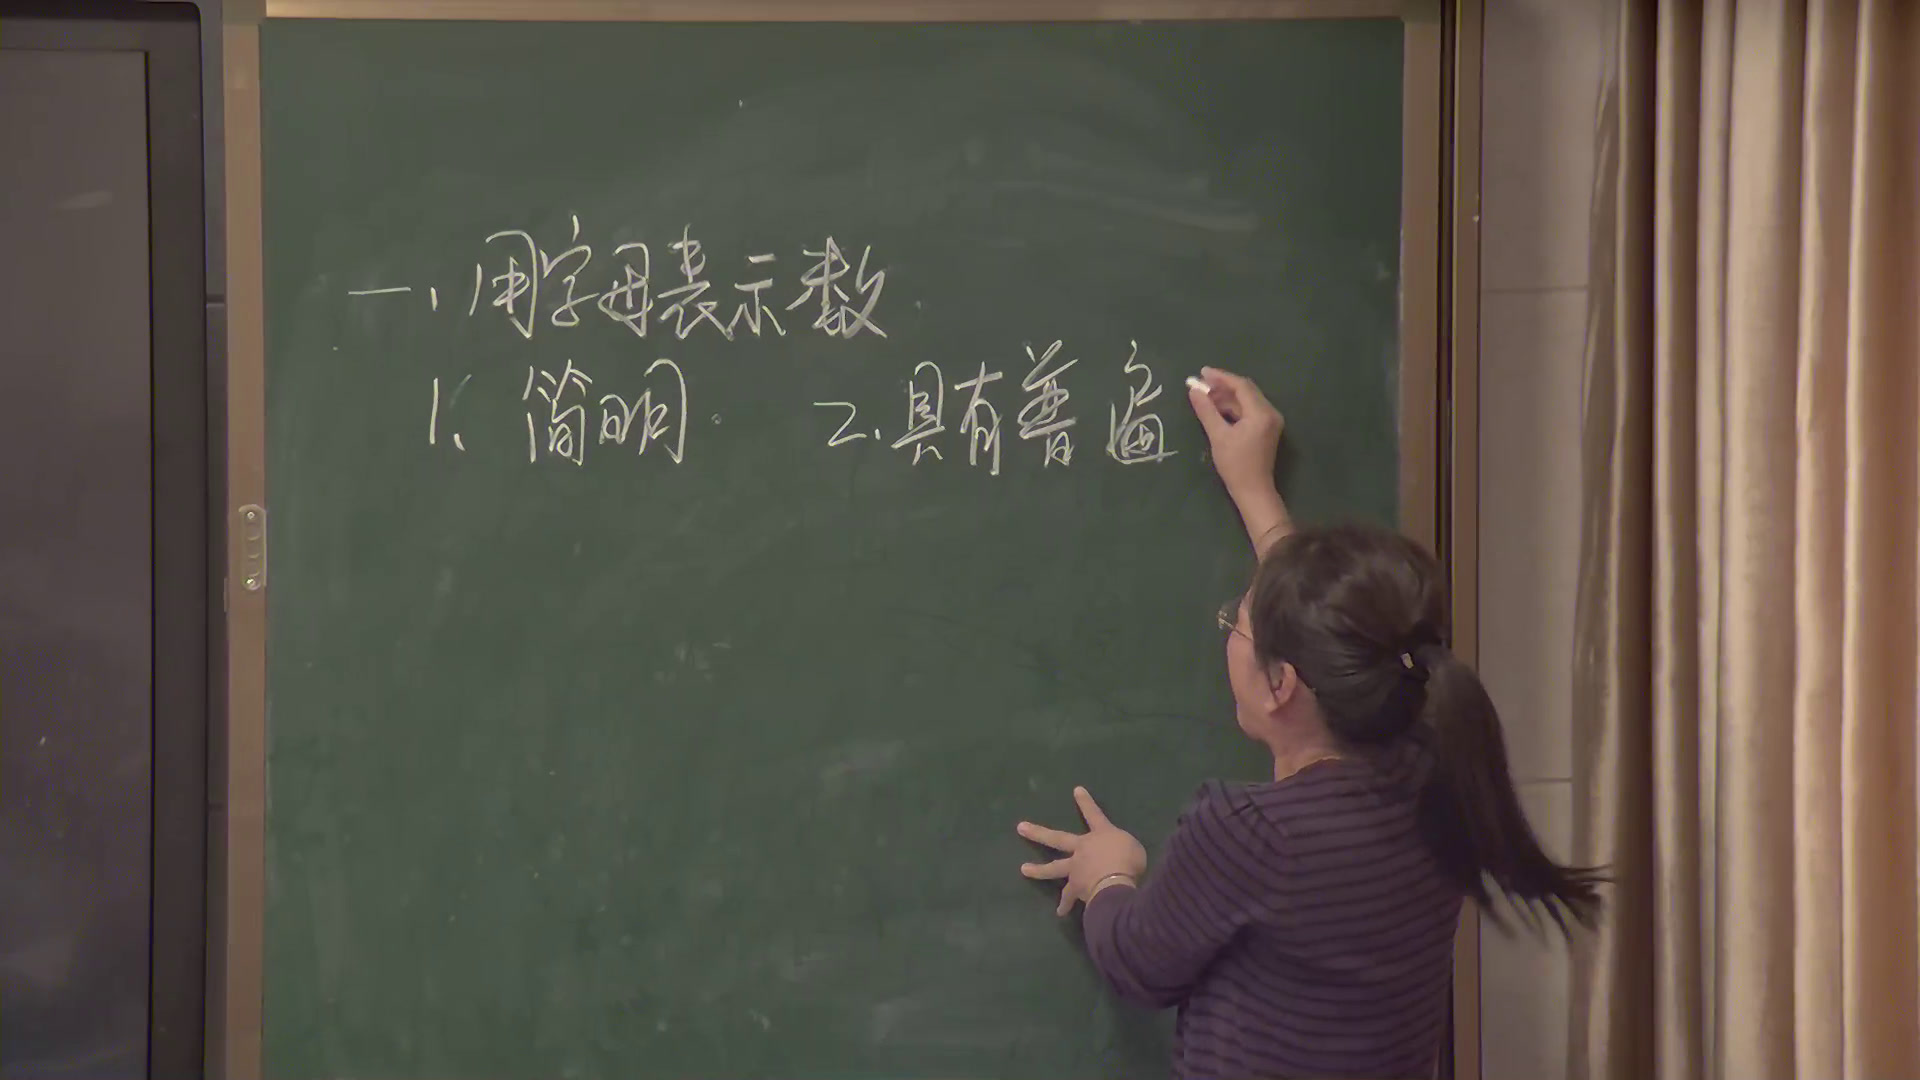 一、用字母表示数
1、简明 2、具有普遍